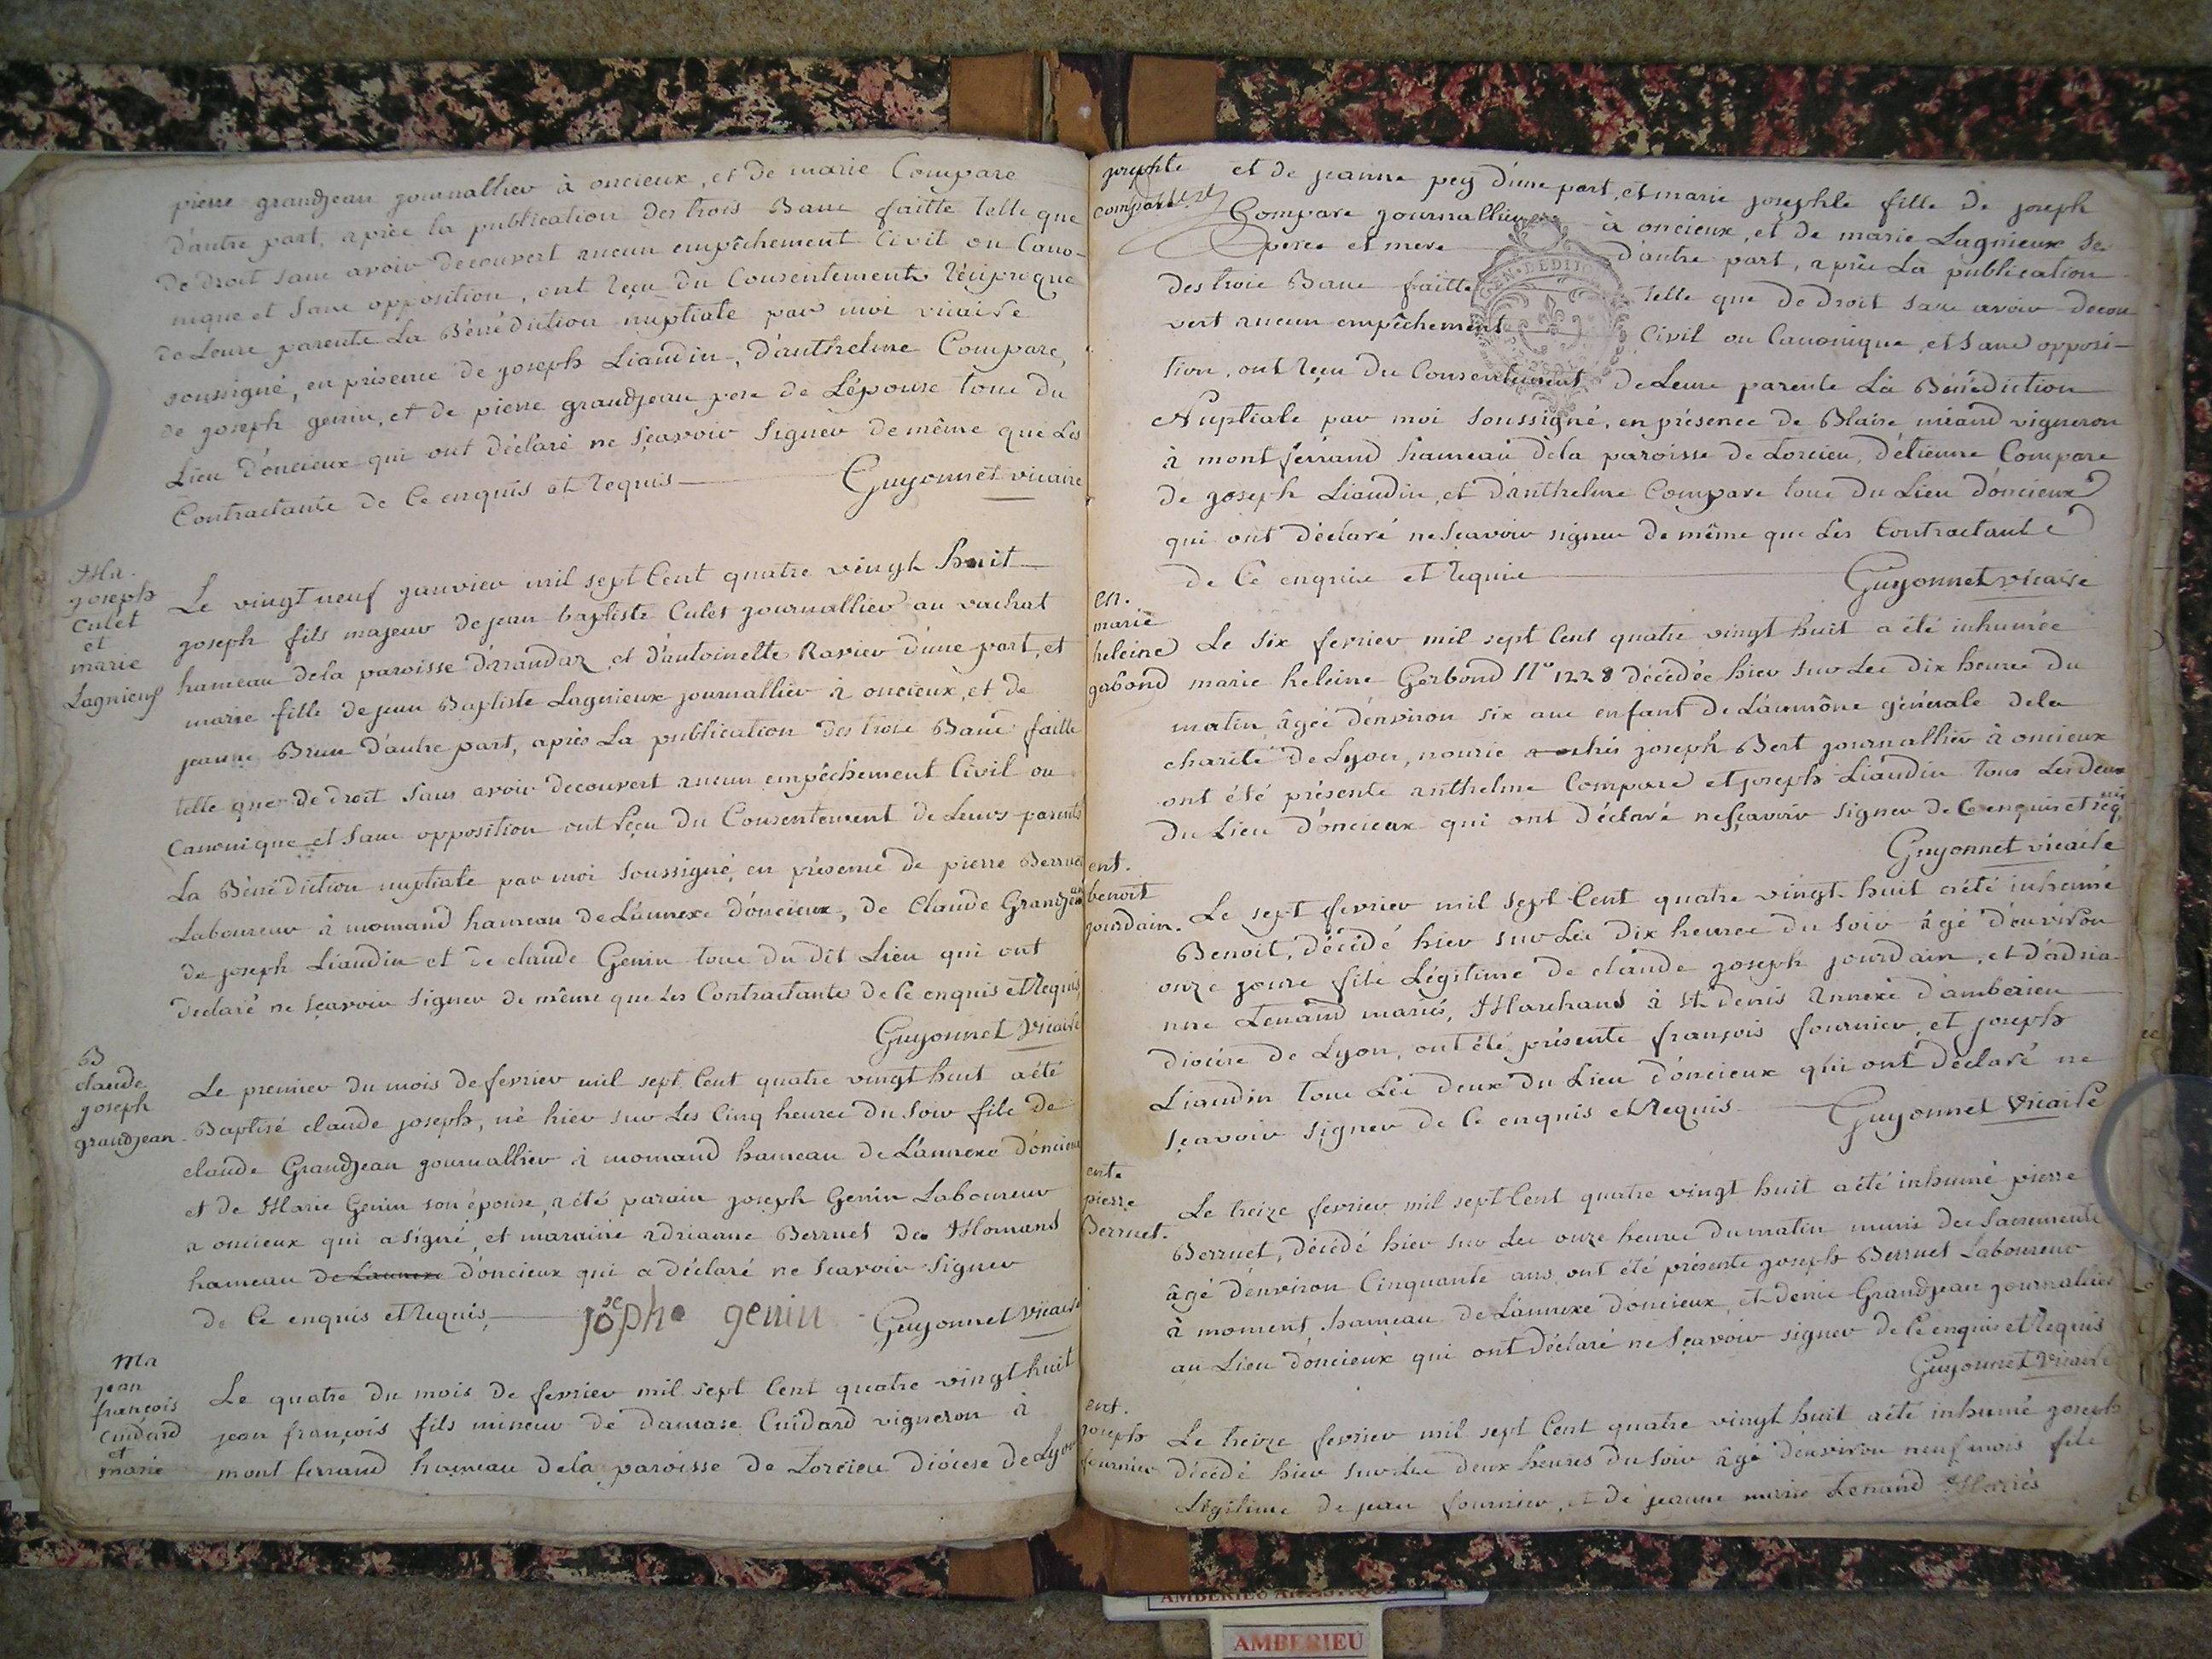 pierre grandjean journallier à oncieux, et de marie Compare
d'autre part, après la publication des trois Bans faitte telle que
de droit sans avoir decouvert aucun empêchement Civil ou Cano-
nique et sans opposition, ont reçu du Consentement réciproque
de Leurs parents La Bénédiction nuptiale par moi vicaire
soussigné, en présence de joseph Liaudin, d'anthelme Compare,
de joseph genin, et de pierre grandjean pere de L'épouse tous du
Lieu d'oncieux qui ont déclaré ne sçavoir signer de même que Les
Contractants de Ce enquis et requis
Guyonnet vicaire
Ma.
joseph
Culet
et
marie
Lagnieux
Le vingt neuf janvier mil sept Cent quatre vingt huit
joseph fils majeur de jean baptiste Culet journallier au vachat
hameau dela paroisse d'arandaz, et d'antoinette Ravier d'une part, et
marie fille de jean Baptiste Lagnieux journallier à oncieux, et de
jeanne Brun d'autre part, après La publication des trois Bans faitte
telle que de droit sans avoir decouvert aucun empêchement Civil ou
Canonique et sans opposition ont reçu du Consentement de Leurs parents
La Bénédiction nuptiale par moi soussigné, en présence de pierre Berruet
Laboureur à momand hameau de L'annexe d'oncieux, de Claude Grandjean
de joseph Liaudin et de claude Genin tous du dit Lieu qui ont
declaré ne sçavoir signer de même que les Contractants de Ce enquis et Requis
Guyonnet Vicaire
B
claude
joseph
grandjean.
Le premier du mois de fevrier mil sept Cent quatre vingt huit a été
Baptisé claude joseph, né hier sur Les Cinq heures du soir fils de
claude Grandjean journallier à momand hameau de L'annexe d'oncieux
et de Marie Genin son épouse, a été parain joseph Genin Laboureur
a oncieux qui a signé, et maraine adrianne Berruet de Momand
hameau de Lannexe d'oncieux qui a déclaré ne sçavoir signer
de Ce enquis et Requis,
josephe genin
Guyonnet Vicaire
Ma
jean
françois
Cuidard
et
marie
Le quatre du mois de fevrier mil sept Cent quatre vingt huit
jean françois fils mineur de damase Cuidard vigneron à
mont ferrand hameau dela paroisse de Lorcieu diócese de Lyon
josephte
compare
et de jeanne pey d'une part, et marie josephte fille de joseph
Compare journallier à oncieux, et de marie Lagnieux se
peres et mere d'autre part, après La publication
des trois Bans faitte telle que de droit sans avoir decou
vert aucun empêchement Civil ou Canonique, et sans opposi-
tion, ont reçu du Consentement de Leurs parents La Bénédiction
Nuptiale par moi soussigné, en présence de Blaise miand vigneron
à mont ferrand hameau dela paroisse de Lorcieu, d'étienne Compare
de joseph Liaudin, et d'anthelme Compare tous du Lieu d'oncieux
qui ont déclaré ne sçavoir signer de même que Les Contractants
de Ce enquis et requis
Guyonnet vicaire
en.
marie
heleine
gabond
Le six fevrier mil sept Cent quatre vingt huit a été inhumée
marie heleine Gerbond N° 1228 décédée hier sur Les dix heures du
matin âgée d'environ six ans enfant de L'aumône générale dela
charité de Lyon, nourie chés joseph Bert journallier à oncieux
ont été présents anthelme Compare et joseph Liaudin tous Les deux
du Lieu d'oncieux qui ont déclaré ne sçavoir signer de Ce enquis et requis
Guyonnet vicaire
ent.
benoit
jourdain.
Le sept fevrier mil sept Cent quatre vingt huit a été inhumé
Benoit, décédé hier sur Les dix heures du soir âgé d'environ
onze jours fils Légitime de claude joseph jourdain, et d'adria-
nne Tenand mariés, Marchand à st denis annexe d'amberieu
diócèse de Lyon, ont été présents françois fournier, et joseph
Liaudin tous Les deux du Lieu d'oncieux qui ont déclaré ne
sçavoir signer de Ce enquis et Requis
Guyonnet Vicaire
ent.
pierre
Berruet.
Le treize fevrier mil sept Cent quatre vingt huit a été inhumé pierre
Berruet, décédé hier sur Les onze heures du matin muni des sacrements
âgé d'environ Cinquante ans, ont été présents joseph Berruet Laboureur
à moment hameau de L'annexe d'oncieux, et denis Grandjean journallier
au Lieu d'oncieux qui ont déclaré ne sçavoir signer de Ce enquis et Requis
Guyonnet Vicaire
ent.
joseph
fournier
Le treize fevrier mil sept Cent quatre vingt huit a été inhumé joseph
décédé hier sur Les deux heures du soir âgé d'environ neuf mois fils
Légitime de jean fournier, et de jeanne marie Tenand Mariés
AMBERIEU